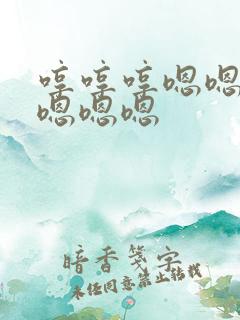 哼哼哼嗯嗯
嗯嗯嗯
暗香笺字
未经同意禁止转载